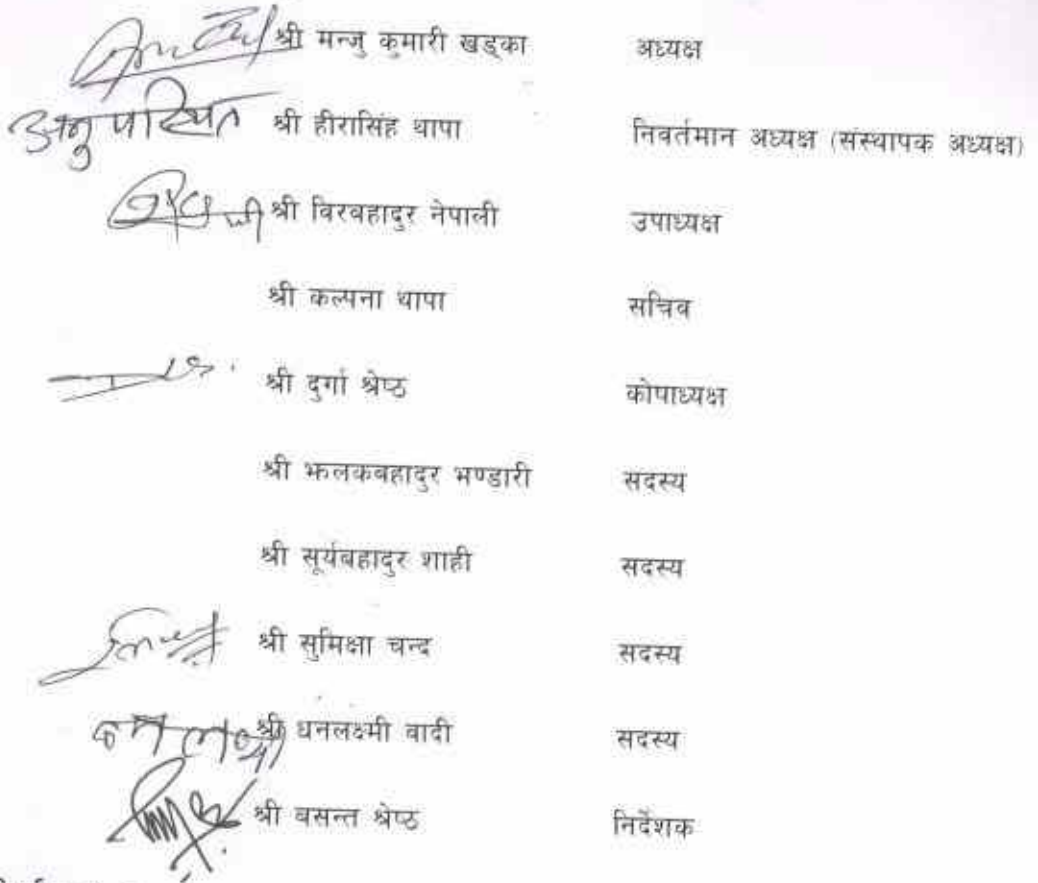 श्री मन्जु कुमारी खड्का अध्यक्ष
अनुपस्थित श्री हीरासिंह थापा निवर्तमान अध्यक्ष (संस्थापक अध्यक्ष)
श्री विरबहादुर नेपाली उपाध्यक्ष
श्री कल्पना थापा सचिव
श्री दुर्गा श्रेष्ठ कोषाध्यक्ष
श्री झलकबहादुर भण्डारी सदस्य
श्री सूर्यबहादुर शाही सदस्य
श्री सुमिक्षा चन्द सदस्य
श्री धनलक्ष्मी वादी सदस्य
श्री बसन्त श्रेष्ठ निर्देशक